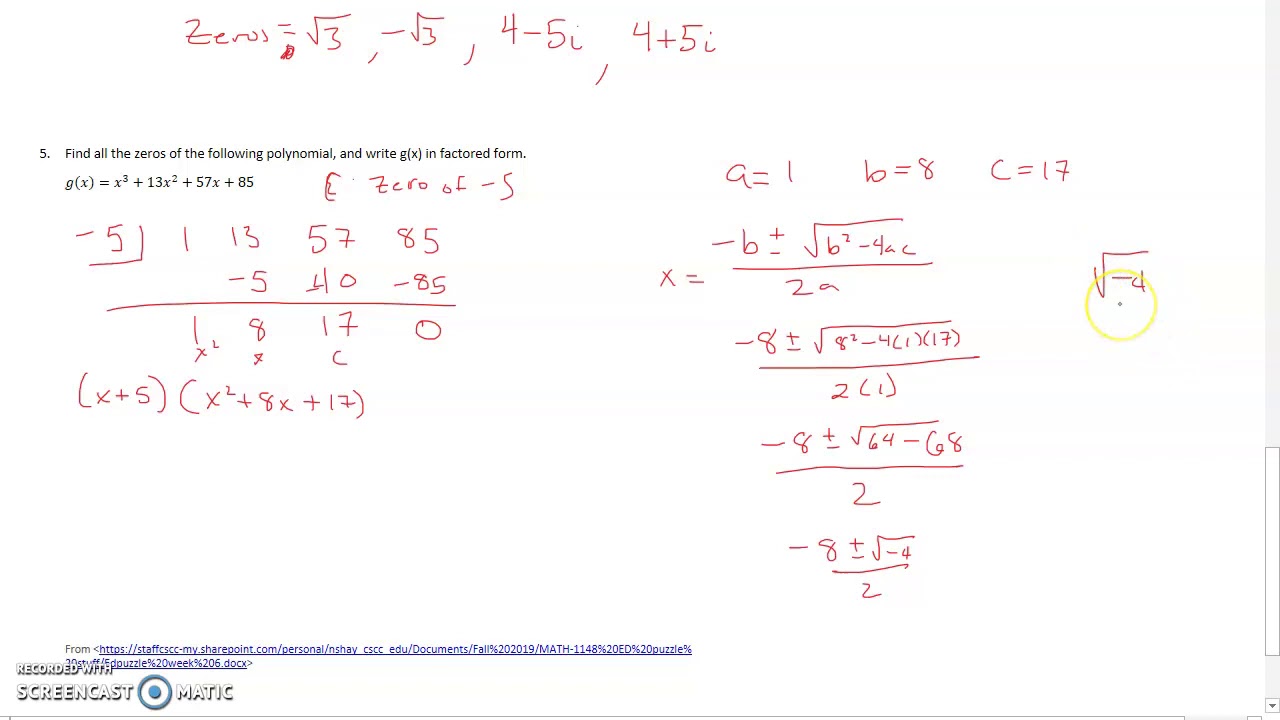 Zeros = √3, -√3, 4-5i, 4+5i
5. Find all the zeros of the following polynomial, and write g(x) in factored form.
g(x) = x³ + 13x² + 57x + 85
[ zero of -5
-5 | 1 13 57 85
-5 -40 -85
1 8 17 0
x² x c
(x+5)(x²+8x+17)
a=1 b=8 c=17
x = (-b ± √(b²-4ac)) / 2a
(-8 ± √(8²-4(1)(17))) / 2(1)
(-8 ± √(64-68)) / 2
(-8 ± √-4) / 2
√-4
From <https://staffcscc-my.sharepoint.com/personal/nshay_cscc_edu/Documents/Fall%202019/MATH-1148%20ED%20puzzle%
20stuff/Edpuzzle%20week%206.docx>
RECORDED WITH
SCREENCAST MATIC